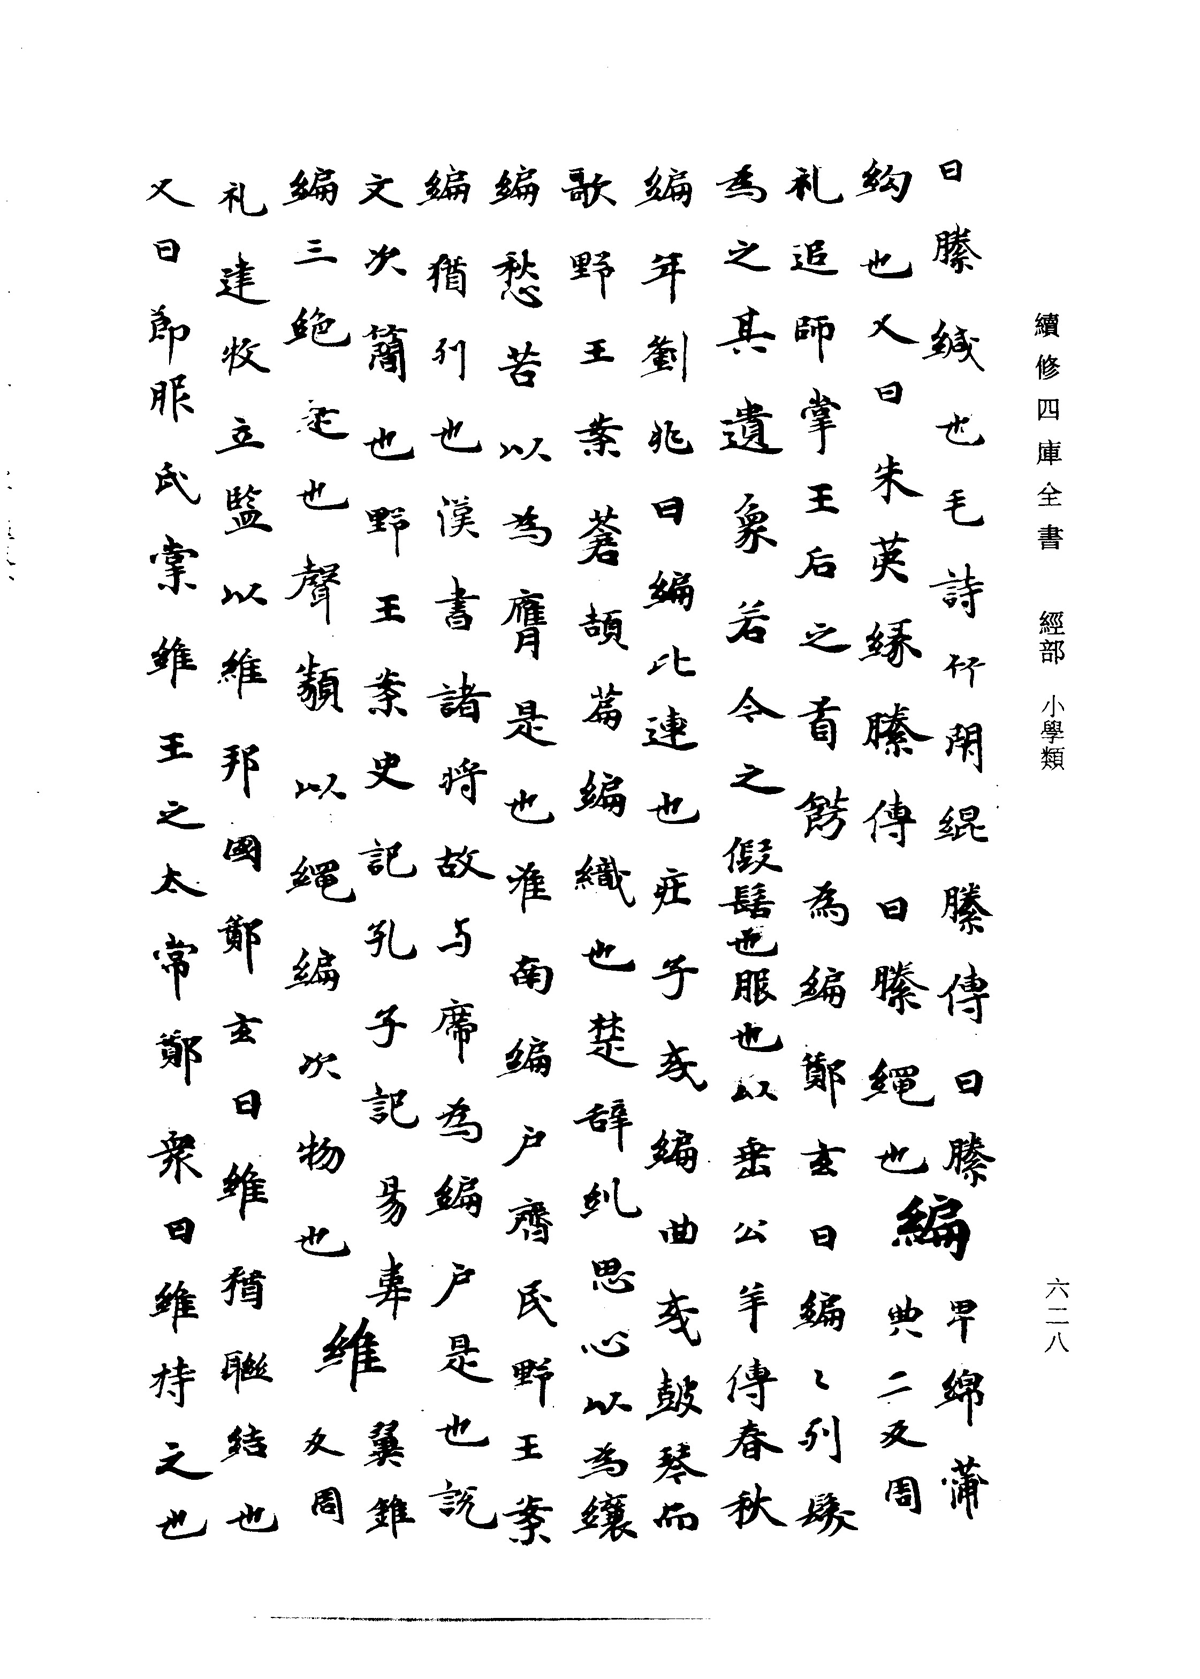 續修四庫全書 經部 小學類
六二八
曰縢緘也毛詩竹閉緄縢傳曰縢
約也又曰朱英緑縢傳曰縢繩也編卑綿蒲典二反周
礼追師掌王后之首餝為編鄭玄曰編〻列髮
為之其遺象若今之假髻也服也以垂公羊傳春秋
編年劉兆曰編比連也庄子或編曲或鼓琴而
歌野王案蒼頡篇編織也楚辞糺思心以為纕
編愁苦以為膺是也淮南編户齊民野王案
編猶列也漢書諸將故与席為編户是也説
文次簡也野王案史記孔子記易韋
編三絶是也聲類以繩編次物也維翼錐反周
礼建牧立監以維邦國鄭玄曰維猶聯結也
又曰節服氏掌維王之太常鄭衆曰維持之也